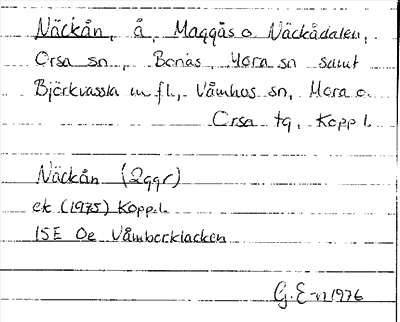 Näckån, å, Maggås o. Näckådalen,
Orsa sn, Bonäs, Mora sn samt
Björkvassla m fl, Våmhus sn, Mora o.
Orsa tg, Kopp l.
Näckån (2ggr)
ek (1975) Kopp.l.
15E 0e Våmberklacken
G.E-n 1976